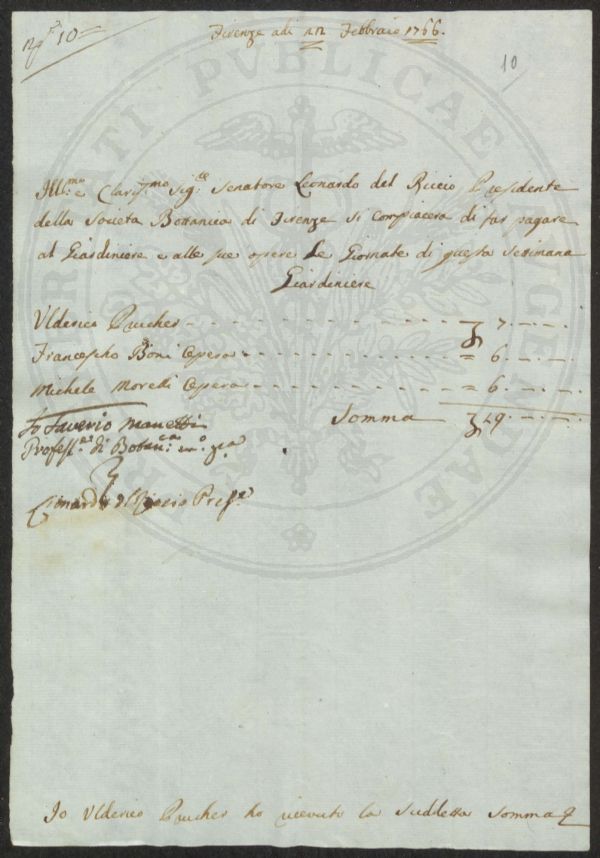 N.º 10
Firenze adi 22 Febbraio 1766.
10
Ill:mo e Clariss:mo Sig:re Senatore Leonardo del Riccio Presidente
della Societa Bottanica di Firenze si compiacera di far pagare
al Giardiniere e alle sue opere Le Giornate di questa Settimana
Giardiniere
Ulderico Prucher 7
Francescho Boni Opera = 6
Michele Morelli Opera = 6
Somma 19
Io Saverio Manetti
Profess:re di Botan:ca
Leonardo del Riccio Pres:e
Io Ulderico Prucher ho riceuto la suddetta Somma
PUBLICAE